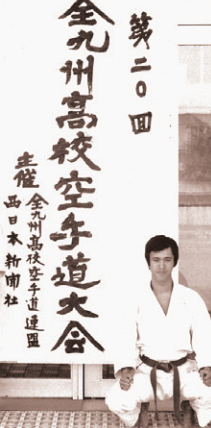 第二〇回
全九州高校空手道大会
主催
全九州高校空手道連盟
西日本新聞社